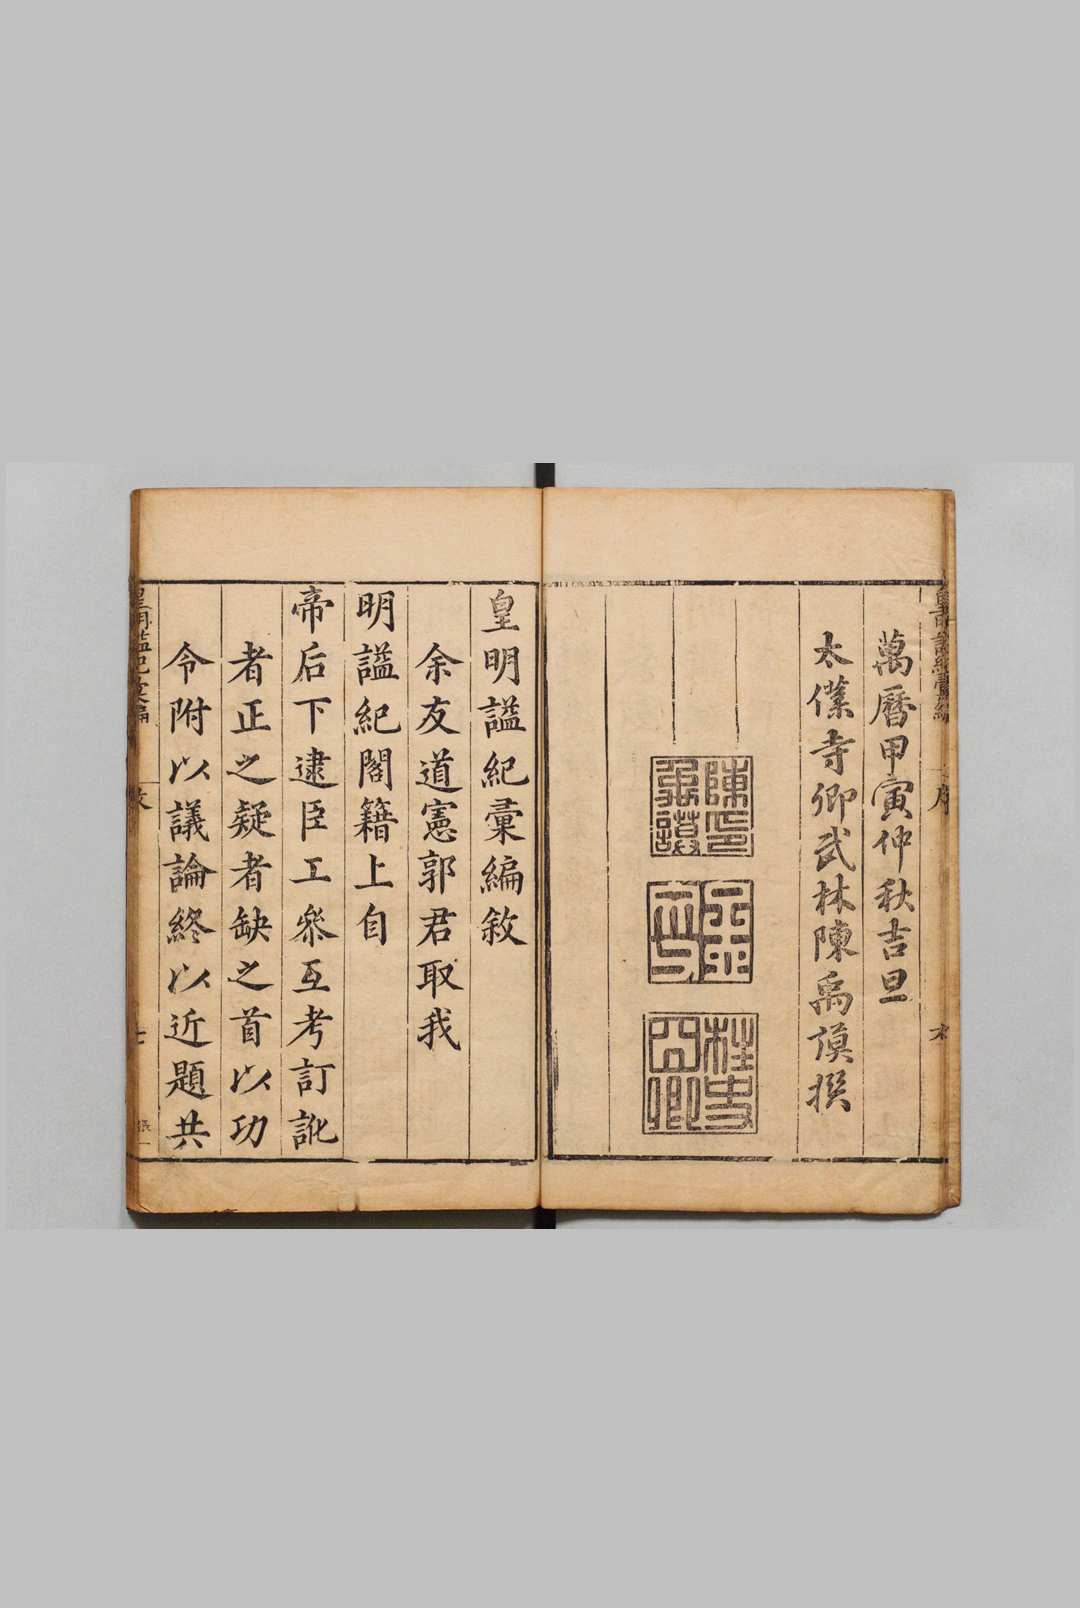 萬曆甲寅仲秋吉旦
太僕寺卿武林陳禹謨撰
陳印
禹謨
皇明謚紀彙編敘
余友道憲郭君取我
明謚紀閣籍上自
帝后下逮臣工叅互考訂訛
者正之疑者缺之首以功
令附以議論終以近題共
皇明謚紀彙編